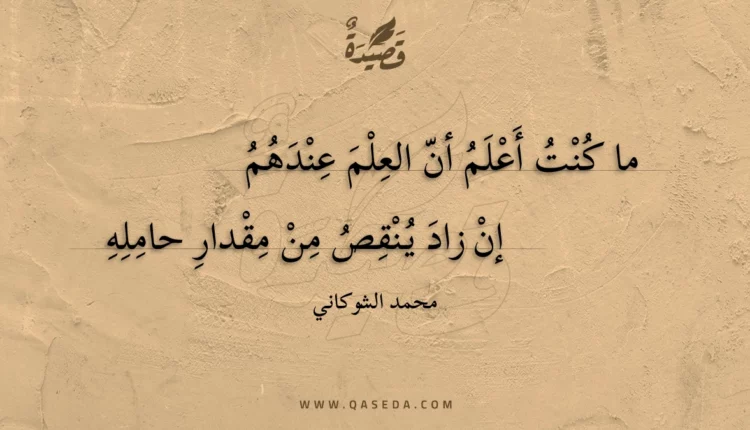 قَصِيدَةٌ
ما كُنْتُ أَعْلَمُ أنّ العِلْمَ عِنْدَهُمُ
إنْ زادَ يُنْقِصُ مِنْ مِقْدارِ حامِلِهِ
محمد الشوكاني
WWW.QASEDA.COM